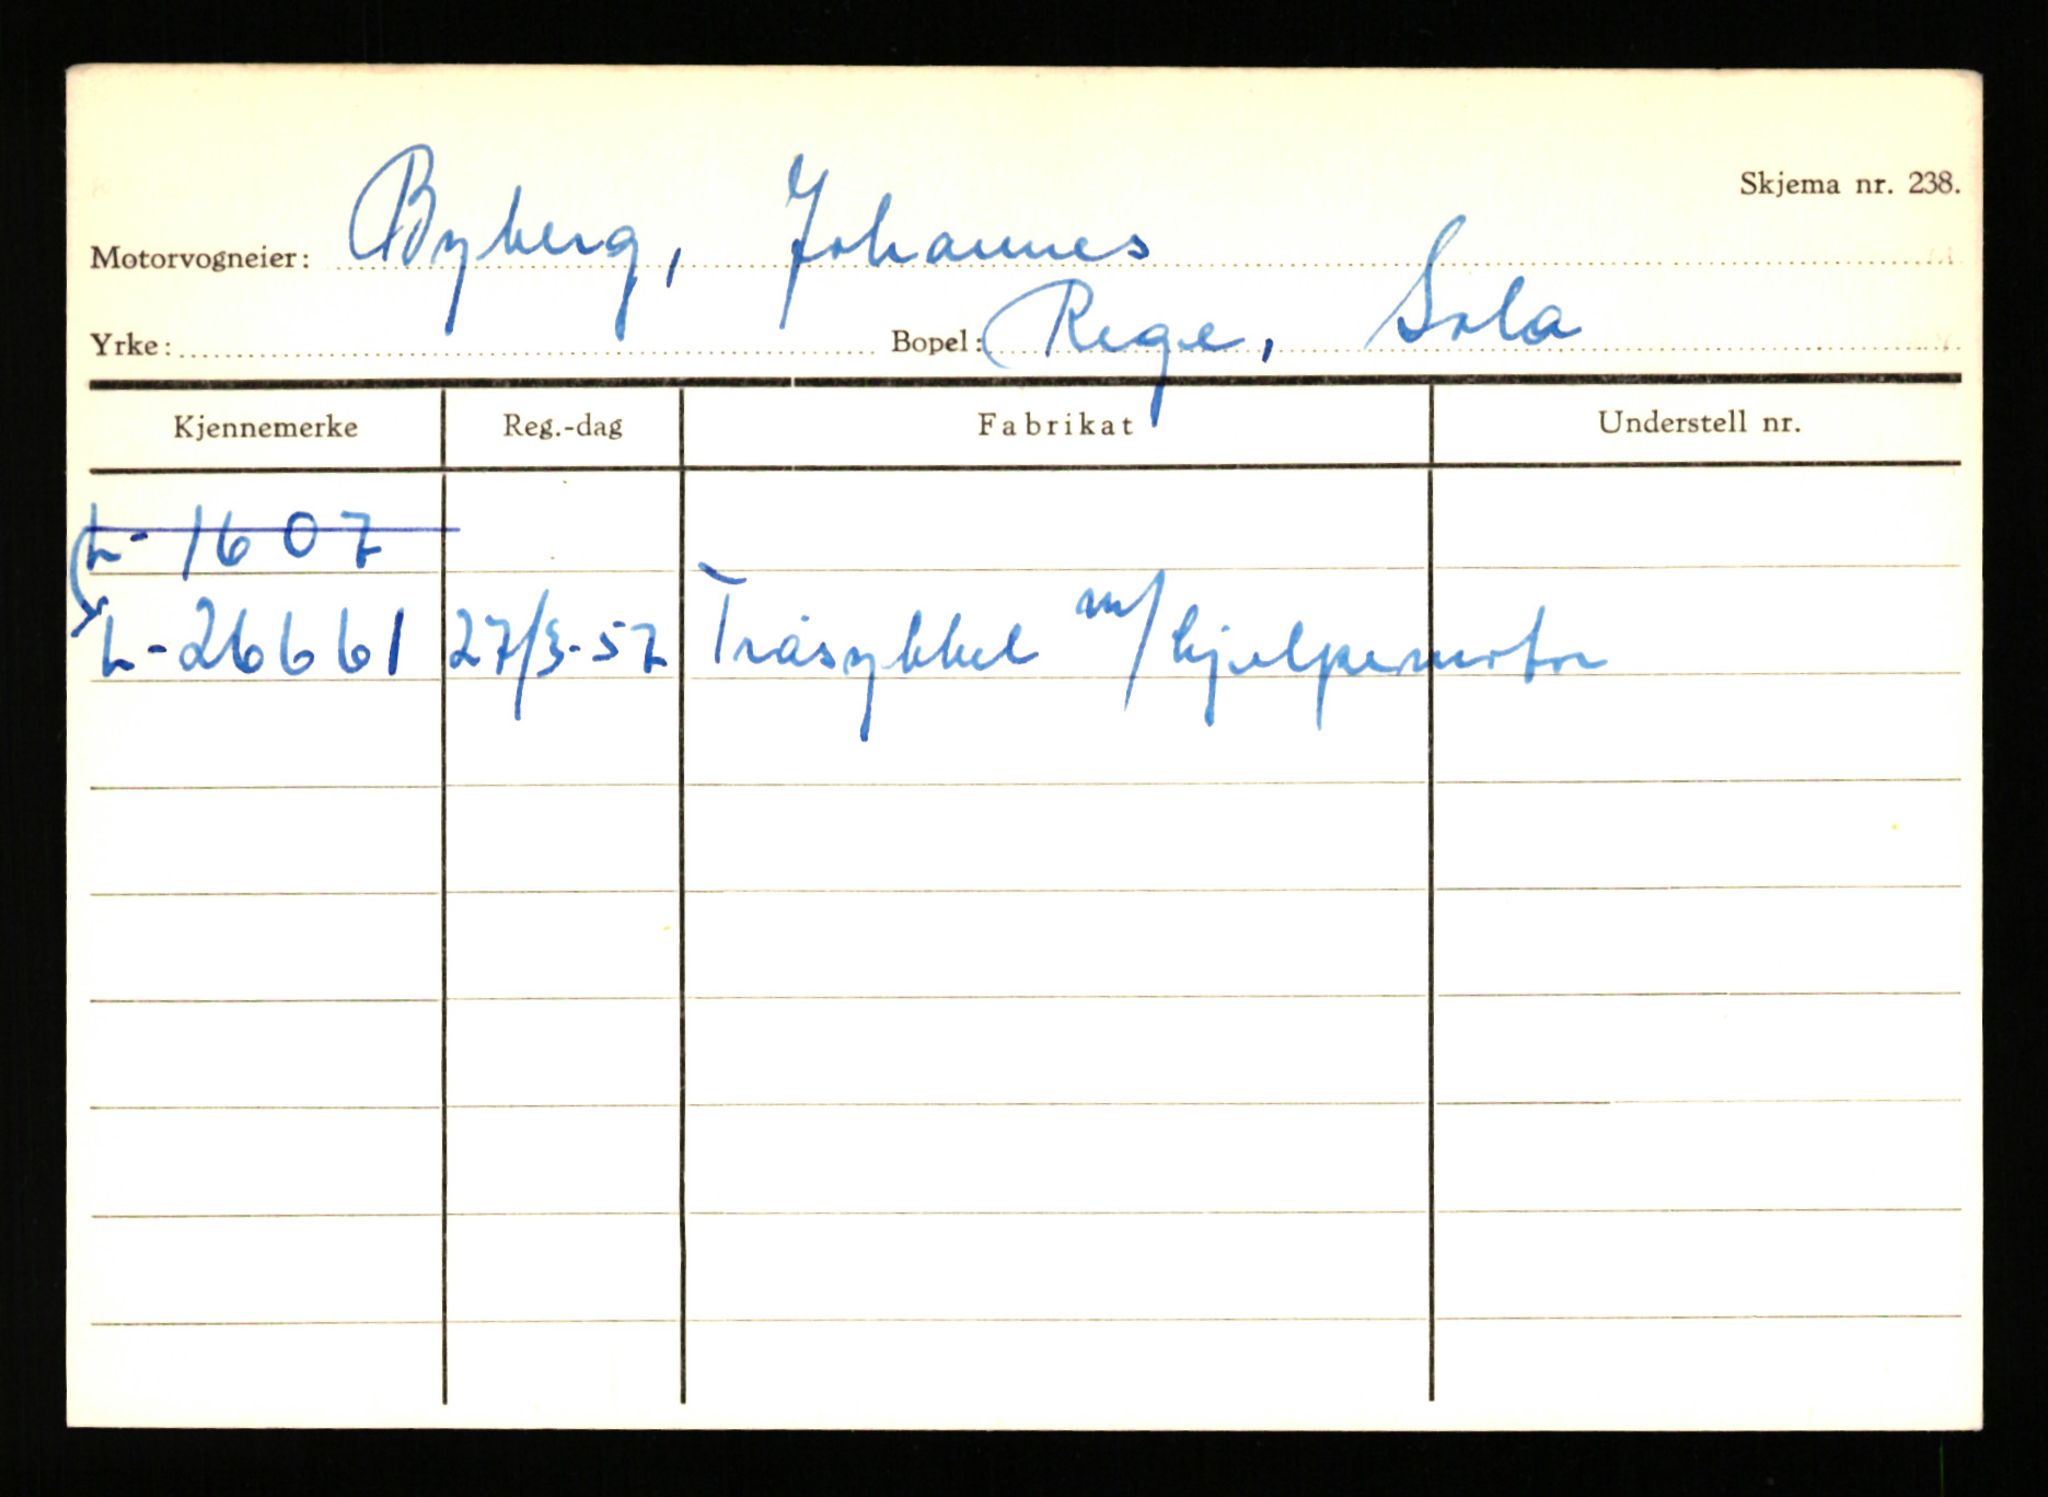 Skjema nr. 238.
Motorvogneier: Byberg, Johannes
Yrke: Bopel: Rege, Sola
Kjennemerke Reg.-dag Fabrikat Understell nr.
L-1607
L-26661 27/3-57 Tråsykkel m/hjelpemotor